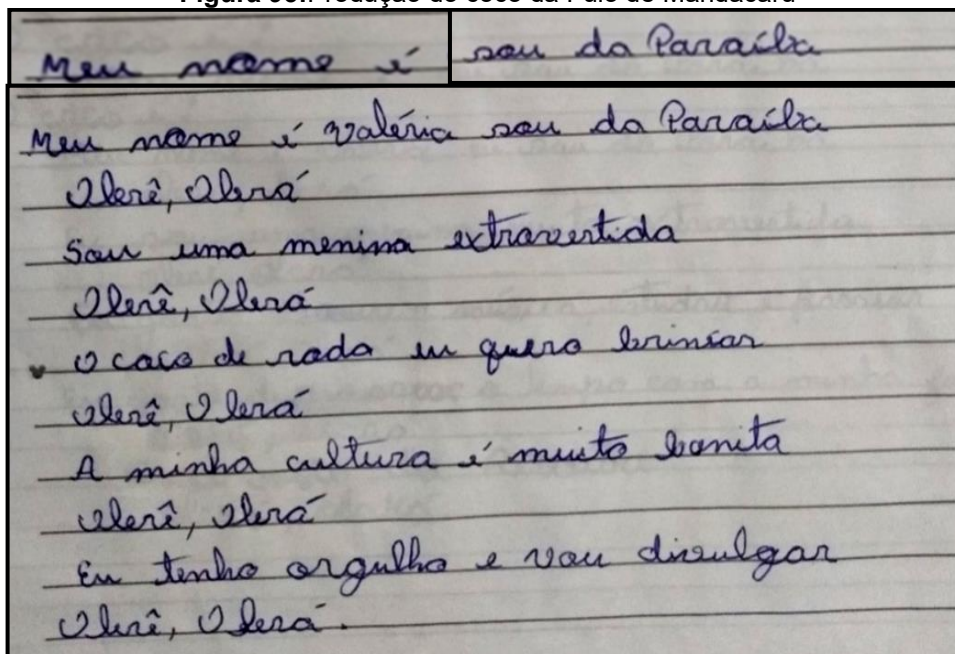 Meu nome é sou da Paraíba
Meu nome é Valéria sou da Paraíba
Olerê, Olerá
Sou uma menina extrovertida
Olerê, Olerá
O coco de roda eu quero brincar
Olerê, Olerá
A minha cultura é muito bonita
Olerê, Olerá
Eu tenho orgulho e vou divulgar
Olerê, Olerá.